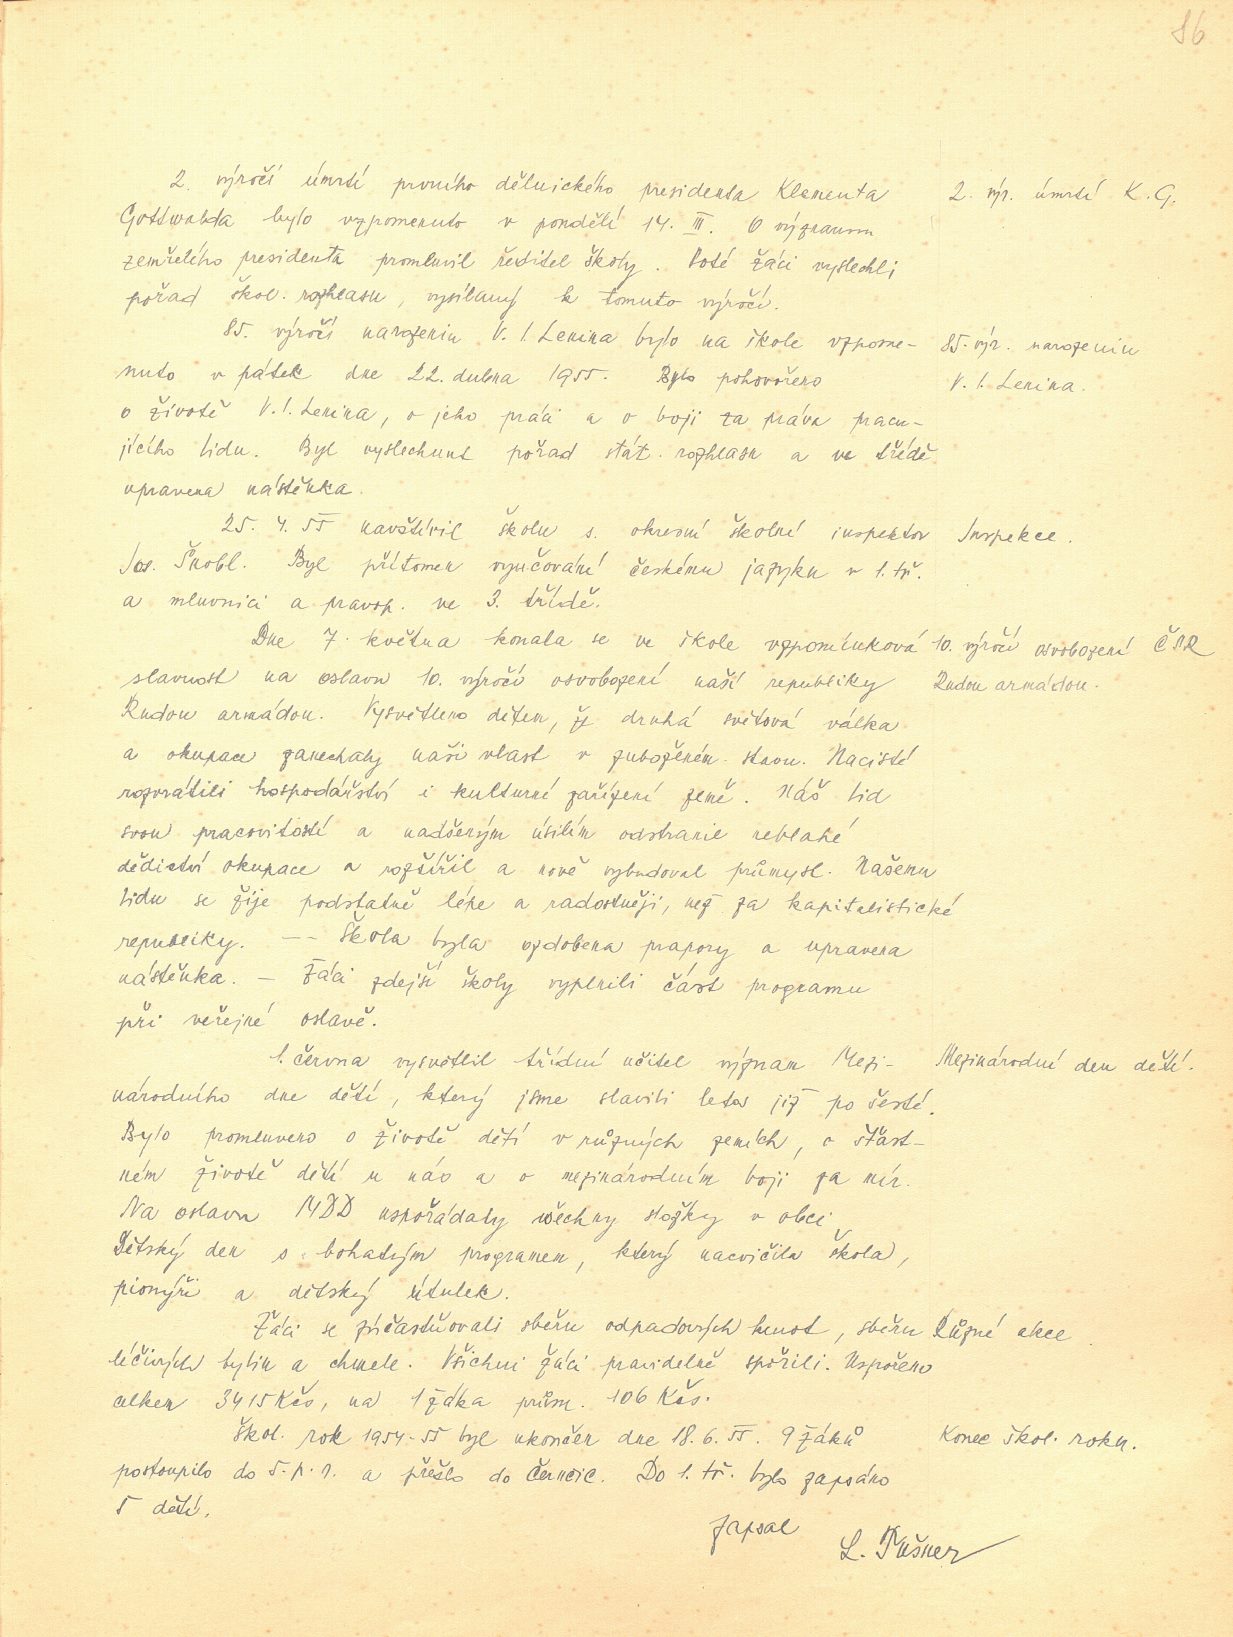 86
2. výročí úmrtí prvního dělnického presidenta Klementa
2. výr. úmrtí K. G.
Gottwalda bylo vzpomenuto v pondělí 14. III. O významu
zemřelého presidenta promluvil ředitel školy. Poté žáci vyslechli
pořad škol. rozhlasu, vysílaný k tomuto výročí.
85. výročí narozenin V. I. Lenina bylo na škole vzpome-
85. výr. narozenin
nuto v pátek dne 22. dubna 1955. Bylo pohovořeno
V. I. Lenina.
o životě V. I. Lenina, o jeho práci a o boji za práva pracu-
jícího lidu. Byl vyslechnut pořad stát. rozhlasu a ve třídě
upravena nástěnka.
25. 4. 55 navštívil školu s. okresní školní inspektor
Inspekce.
Jos. Šnobl. Byl přítomen vyučování českému jazyku v 1. tř.
a mluvnici a pravop. ve 3. třídě.
Dne 7. května konala se ve škole vzpomínková
10. výročí osvobození ČSR
slavnost na oslavu 10. výročí osvobození naší republiky
Rudou armádou.
Rudou armádou. Vysvětleno dětem, že druhá světová válka
a okupace zanechaly naši vlast v zuboženém stavu. Nacisté
rozvrátili hospodářství i kulturní zařízení země. Náš lid
svou pracovitostí a nadšeným úsilím odstranil neblahé
dědictví okupace a rozšířil a nově vybudoval průmysl. Našemu
lidu se žije podstatně lépe a radostněji, než za kapitalistické
republiky. -- Škola byla vyzdobena prapory a upravena
nástěnka. - Žáci zdejší školy vyplnili část programu
při veřejné oslavě.
1. června vysvětlil třídní učitel význam Mezi-
Mezinárodní den dětí.
národního dne dětí, který jsme slavili letos již po šesté.
Bylo promluveno o životě dětí v různých zemích, o šťast-
ném životě dětí u nás a o mezinárodním boji za mír.
Na oslavu MDD uspořádaly všechny složky v obci
Dětský den s bohatým programem, který nacvičila škola,
pionýři a dětský útulek.
Žáci se zúčastňovali sběru odpadových hmot, sběru
Různé akce
léčivých bylin a chmele. Všichni žáci pravidelně spořili. Uspořeno
celkem 3415 Kčs, na 1 žáka prům. 106 Kčs.
Škol. rok 1954-55 byl ukončen dne 18. 6. 55. 9 žáků
Konec škol. roku.
postoupilo do 5. p. r. a přešlo do Černčic. Do 1. tř. bylo zapsáno
5 dětí.
Zapsal